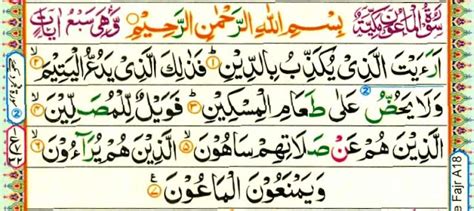 سُوْرَةُ الْمَاعُوْنِ مَكِّيَّةٌ بِسْمِ اللّٰهِ الرَّحْمٰنِ الرَّحِيْمِ وَّهِىَ سَبْعُ اٰيَاتٍ
اَرَءَيْتَ الَّذِىْ يُكَذِّبُ بِالدِّيْنِ ۝۱ فَذٰلِكَ الَّذِىْ يَدُعُّ الْيَتِيْمَ ۝۲
وَلَا يَحُضُّ عَلٰى طَعَامِ الْمِسْكِيْنِ ۝۳ فَوَيْلٌ لِّلْمُصَلِّيْنَ ۝۴
الَّذِيْنَ هُمْ عَنْ صَلَاتِهِمْ سَاهُوْنَ ۝۵ الَّذِيْنَ هُمْ يُرَآءُوْنَ ۝۶
وَيَمْنَعُوْنَ الْمَاعُوْنَ ۝۷
e Fajr A18